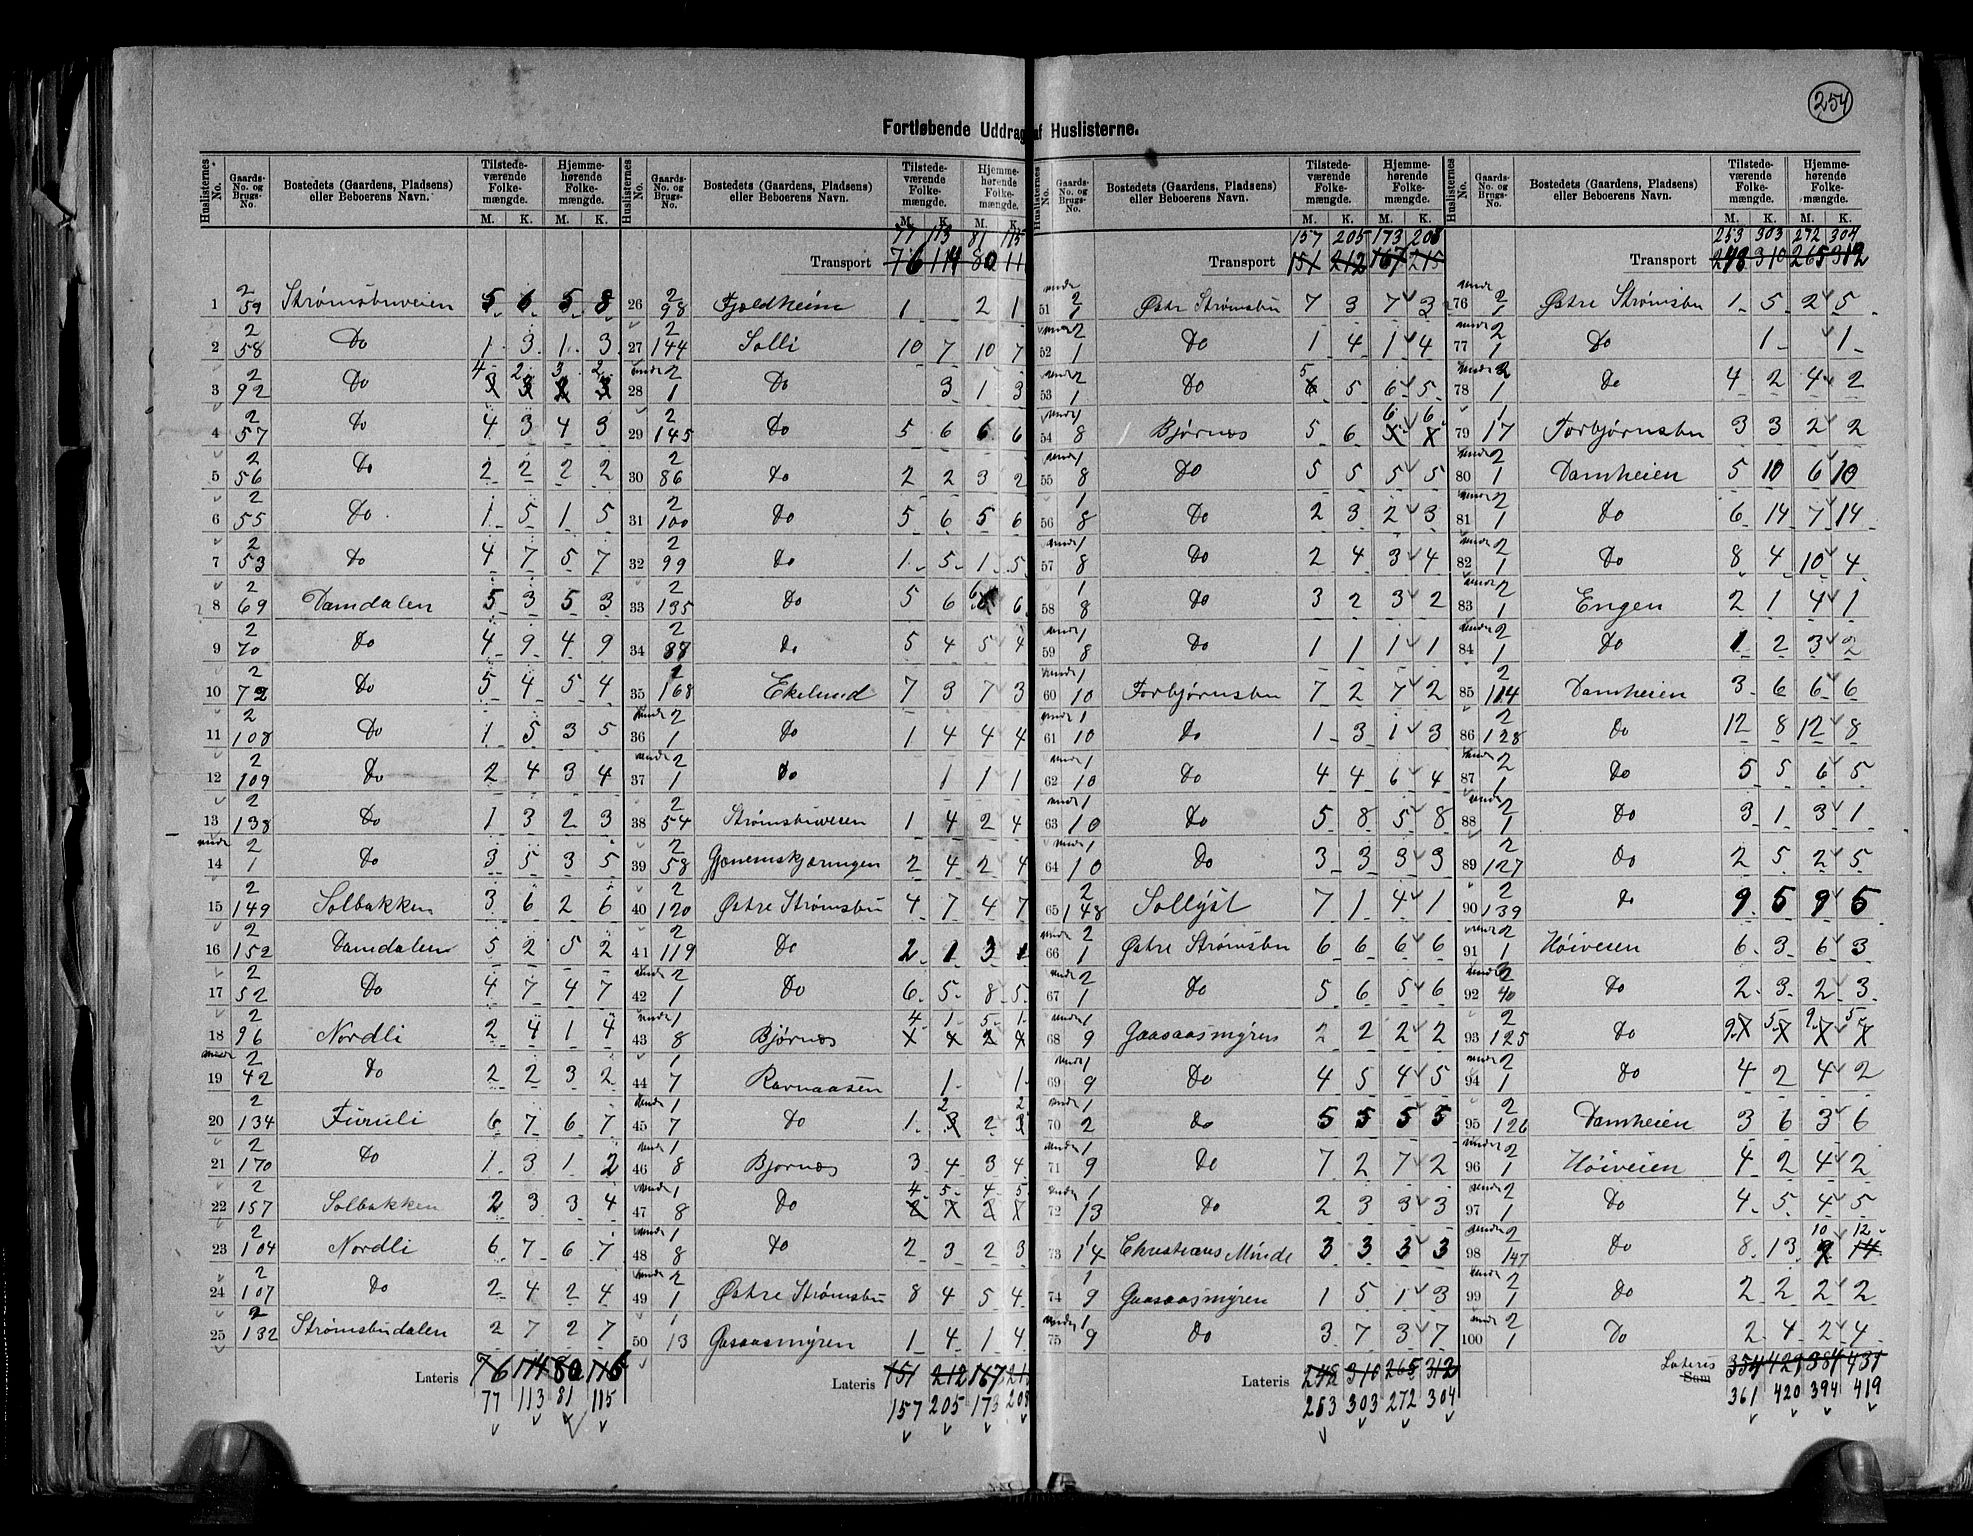 254
Fortløbende Uddrag af Huslisterne.
Huslisternes No. | Gaards-No. og Brugs-No. | Bostedets (Gaardens, Pladsens) eller Beboerens Navn. | Tilstedeværende Folkemængde. M. K. | Hjemmehørende Folkemængde. M. K.
1 2/59 Strømsbuveien 5 6 5 8
2 2/58 Do 1 3 1 3
3 2/92 Do 4 2 3 2
4 2/57 Do 4 3 4 3
5 2/56 Do 2 2 2 2
6 2/55 Do 1 5 1 5
7 2/53 Do 4 7 5 7
8 2/69 Damdalen 5 3 5 3
9 2/70 Do 4 9 4 9
10 2/72 Do 5 4 5 4
11 2/108 Do 1 5 3 5
12 2/109 Do 2 4 3 4
13 2/138 Do 1 3 2 3
14 under 2/1 Do 3 5 3 5
15 2/149 Solbakken 3 6 2 6
16 2/152 Damdalen 5 2 5 2
17 2/52 Do 4 7 4 7
18 2/96 Nordli 2 4 1 4
19 under 2/42 Do 2 2 3 2
20 2/134 Furuli 6 7 6 7
21 2/170 Do 1 3 1 2
22 2/157 Solbakken 2 3 3 4
23 2/104 Nordli 6 7 6 7
24 2/107 Do 2 4 2 4
25 2/132 Strømsbudalen 2 7 2 7
Lateris 76 114 80 116
77 113 81 115
77 113 81 115
Transport 76 114 80 11
26 2/98 Fjeldheim 1 2 1
27 2/144 Solli 10 7 10 7
28 under 2/1 Do 3 1 3
29 2/145 Do 5 6 6 6
30 2/86 Do 2 2 3 2
31 2/100 Do 5 6 5 6
32 2/99 Do 1 5 1 5
33 2/135 Do 5 6 6 6
34 2/88 Do 5 4 5 4
35 2/168 Ekelund 7 3 7 3
36 under 2/1 Do 1 4 4 4
37 under 2/1 Do 1 1 1
38 2/54 Strømsbuveien 1 4 2 4
39 2/58 Gjenemskjæringen 2 4 2 4
40 2/120 Østre Strømsbu 4 7 4 7
41 2/119 Do 2 1 3 1
42 under 2/1 Do 6 5 8 5
43 under 1/8 Bjørnes 4 1 5 1
44 1/7 Ravnaasen 1 1
45 under 1/7 Do 1 2 2 2
46 under 1/8 Bjørnes 3 4 3 4
47 under 1/8 Do 4 5 4 5
48 under 1/8 Do 2 3 2 3
49 under 2/1 Østre Strømsbu 8 4 5 4
50 1/13 Gaasaasmyren 1 4 1 4
Lateris 151 212 167 21
157 205 173 208
157 205 173 208
Transport 151 212 167 215
51 under 2/1 Østre Strømsbu 7 3 7 3
52 under 2/1 Do 1 4 1 4
53 under 2/1 Do 5 5 6 5
54 under 1/8 Bjørnes 5 6 6 6
55 under 1/8 Do 5 5 5 5
56 1/8 Do 2 3 2 3
57 under 1/8 Do 2 4 3 4
58 1/8 Do 3 2 3 2
59 under 1/8 Do 1 1 1 1
60 under 1/10 Torbjørnsbu 7 2 7 2
61 under 1/10 Do 1 3 1 3
62 under 1/10 Do 4 4 6 4
63 under 1/10 Do 5 8 5 8
64 under 1/10 Do 3 3 3 3
65 2/148 Sollyst 7 1 4 1
66 under 2/1 Østre Strømsbu 6 6 6 6
67 under 2/1 Do 5 6 5 6
68 under 1/9 Gaasaasmyren 2 2 2 2
69 under 1/9 Do 4 5 4 5
70 under 1/2 Do 5 5 5 5
71 under 1/9 Do 7 2 7 2
72 under 1/13 Do 2 3 3 3
73 1/14 Christians Minde 3 3 3 3
74 1/9 Gaasaasmyren 1 5 1 3
75 under 1/9 Do 3 7 3 7
Lateris 248 310 265 312
253 303 272 304
253 303 272 304
Transport 248 310 265 312
76 under 2/1 Østre Strømsbu 1 5 2 5
77 under 2/1 Do 1 1
78 under 2/1 Do 4 2 4 2
79 1/17 Torbjørnsbu 3 3 2 2
80 under 2/1 Damheien 5 10 6 10
81 under 2/1 Do 6 14 7 14
82 under 2/1 Do 8 4 10 4
83 under 2/1 Engen 2 1 4 1
84 under 2/1 Do 1 2 3 2
85 2/114 Damheien 3 6 6 6
86 2/128 Do 12 8 12 8
87 under 2/1 Do 5 5 6 5
88 under 2/1 Do 3 1 3 1
89 2/127 Do 2 5 2 5
90 2/139 Do 9 5 9 5
91 under 2/1 Høiveien 6 3 6 3
92 under 2/40 Do 2 3 2 3
93 2/125 Do 9 5 9 5
94 under 2/1 Do 4 2 4 2
95 2/126 Damheien 3 6 3 6
96 under 2/1 Høiveien 4 2 4 2
97 under 2/1 Do 4 5 4 5
98 under 2/147 Do 8 13 10 12
99 under 2/1 Do 2 2 2 2
100 under 2/1 Do 2 4 2 4
Lateris 354 429 384 431
361 420 394 419